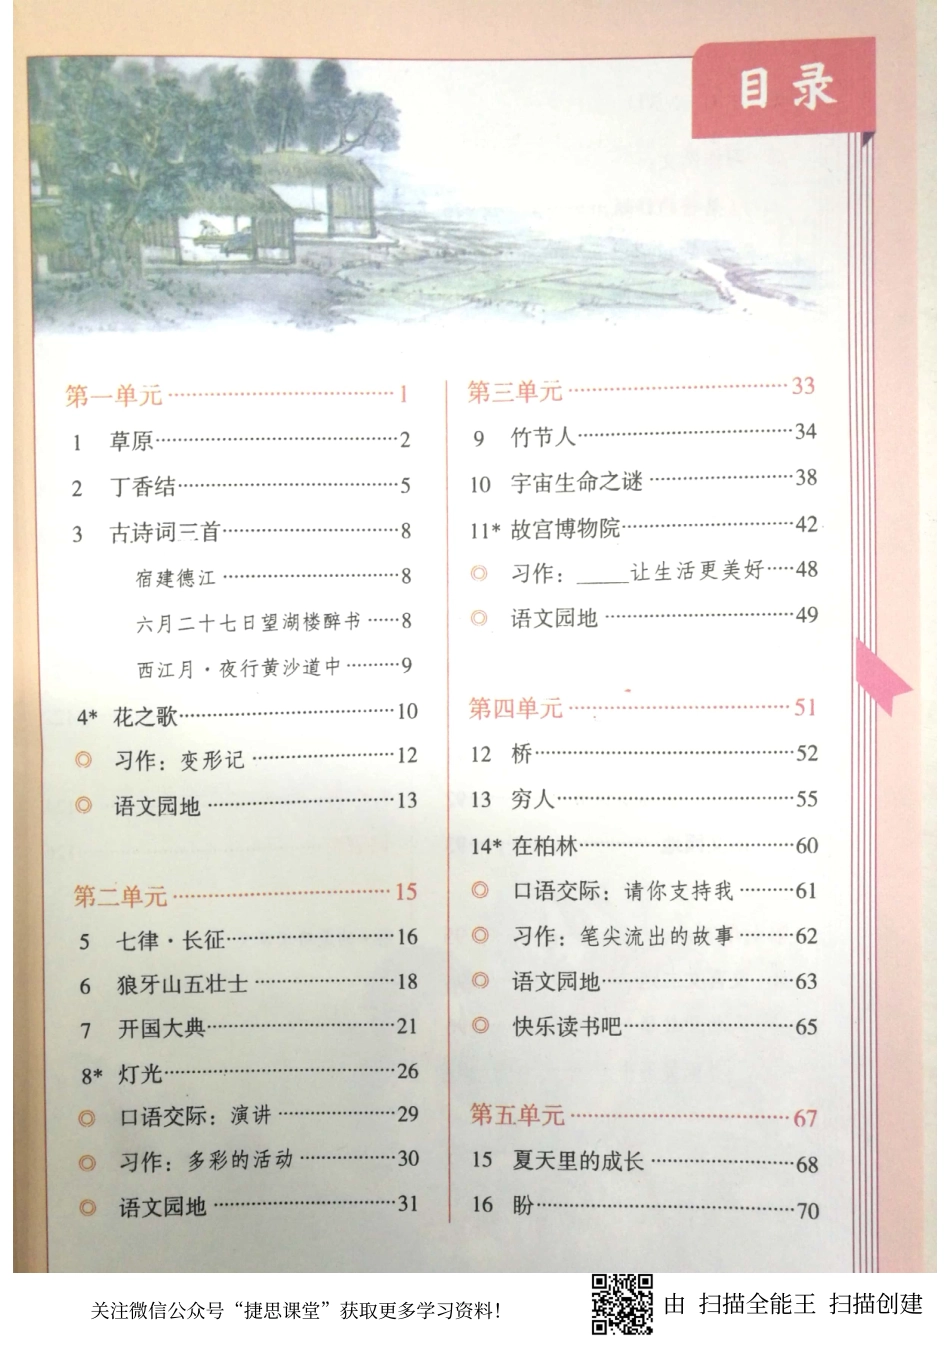 目录
第一单元 1
1 草原 2
2 丁香结 5
3 古诗词三首 8
宿建德江 8
六月二十七日望湖楼醉书 8
西江月·夜行黄沙道中 9
4* 花之歌 10
◎ 习作：变形记 12
◎ 语文园地 13
第二单元 15
5 七律·长征 16
6 狼牙山五壮士 18
7 开国大典 21
8* 灯光 26
◎ 口语交际：演讲 29
◎ 习作：多彩的活动 30
◎ 语文园地 31
第三单元 33
9 竹节人 34
10 宇宙生命之谜 38
11* 故宫博物院 42
◎ 习作：____让生活更美好 48
◎ 语文园地 49
第四单元 51
12 桥 52
13 穷人 55
14* 在柏林 60
◎ 口语交际：请你支持我 61
◎ 习作：笔尖流出的故事 62
◎ 语文园地 63
◎ 快乐读书吧 65
第五单元 67
15 夏天里的成长 68
16 盼 70
关注微信公众号“捷思课堂”获取更多学习资料！
由 扫描全能王 扫描创建